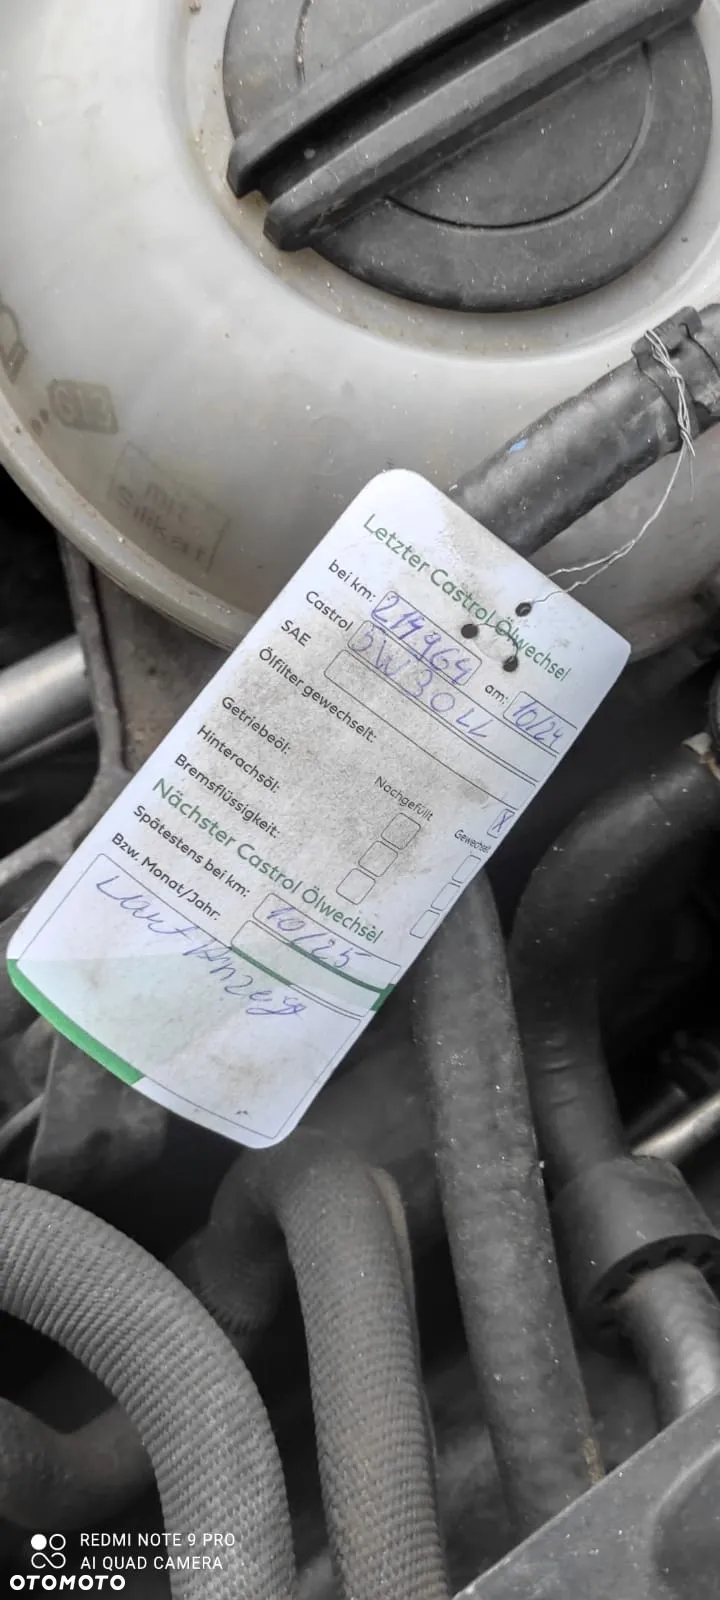 G13
mit
Silikat
Letzter Castrol Ölwechsel
bei km: 214964 am: 10/24
Castrol 5W30LL
SAE
Ölfilter gewechselt: X
Nachgefüllt Gewechselt
Getriebeöl:
Hinterachsöl:
Bremsflüssigkeit:
Nächster Castrol Ölwechsel
Spätestens bei km: 10/25
Bzw. Monat/Jahr:
Laut Anzeige
REDMI NOTE 9 PRO
AI QUAD CAMERA
OTOMOTO